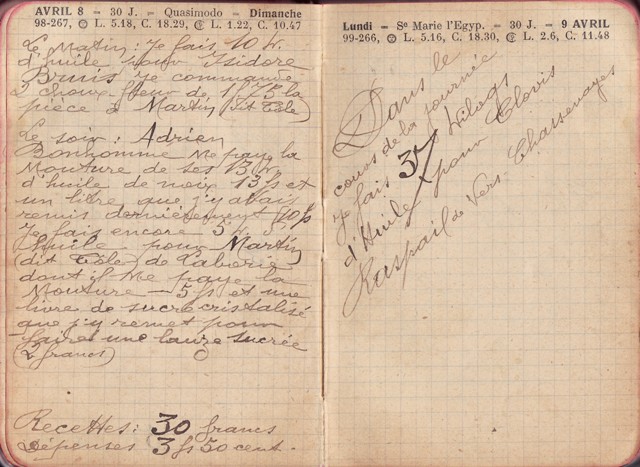 AVRIL 8 – 30 J. – Quasimodo – Dimanche
98-267, L. 5.18, C. 18.29, L. 1.22, C. 10.47
Le Matin: Je fais 10 k.
d'huile pour Isidore
Bruis Je commande
2 choux fleur de 1f75 la
pièce à Martin (dit Tôle)
Le soir: Adrien
Bonhomme me paye la
Mouture de ses 13 k.
d'huile de noix 13 fs et
un litre que j'y avais
remis dernièrement (10 fs
Je fais encore 5 k.
d'huile pour Martin
(dit Tôle) de Laborie
dont il me paye la
Mouture – 5 fs et une
livre de sucre cristalisé
que j'y remet pour
faire une sucrée
(2 francs)
Recettes: 30 francs
Dépenses 3 fs 50 cent.
Lundi – Se Marie l'Egyp. – 30 J. – 9 AVRIL
99-266, L. 5.16, C. 18.30, L. 2.6, C. 11.48
Dans le
cours de la journée
Je fais 37 kilogs
d'Huile pour Clovis
Raspail de Vers Chassevayes